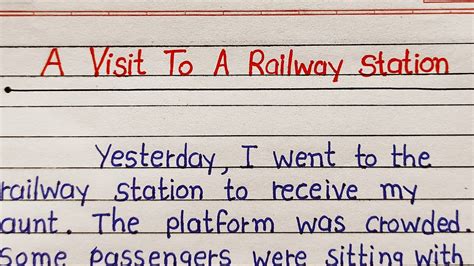 A Visit To A Railway Station
Yesterday, I went to the
railway station to receive my
aunt. The platform was crowded.
Some passengers were sitting with